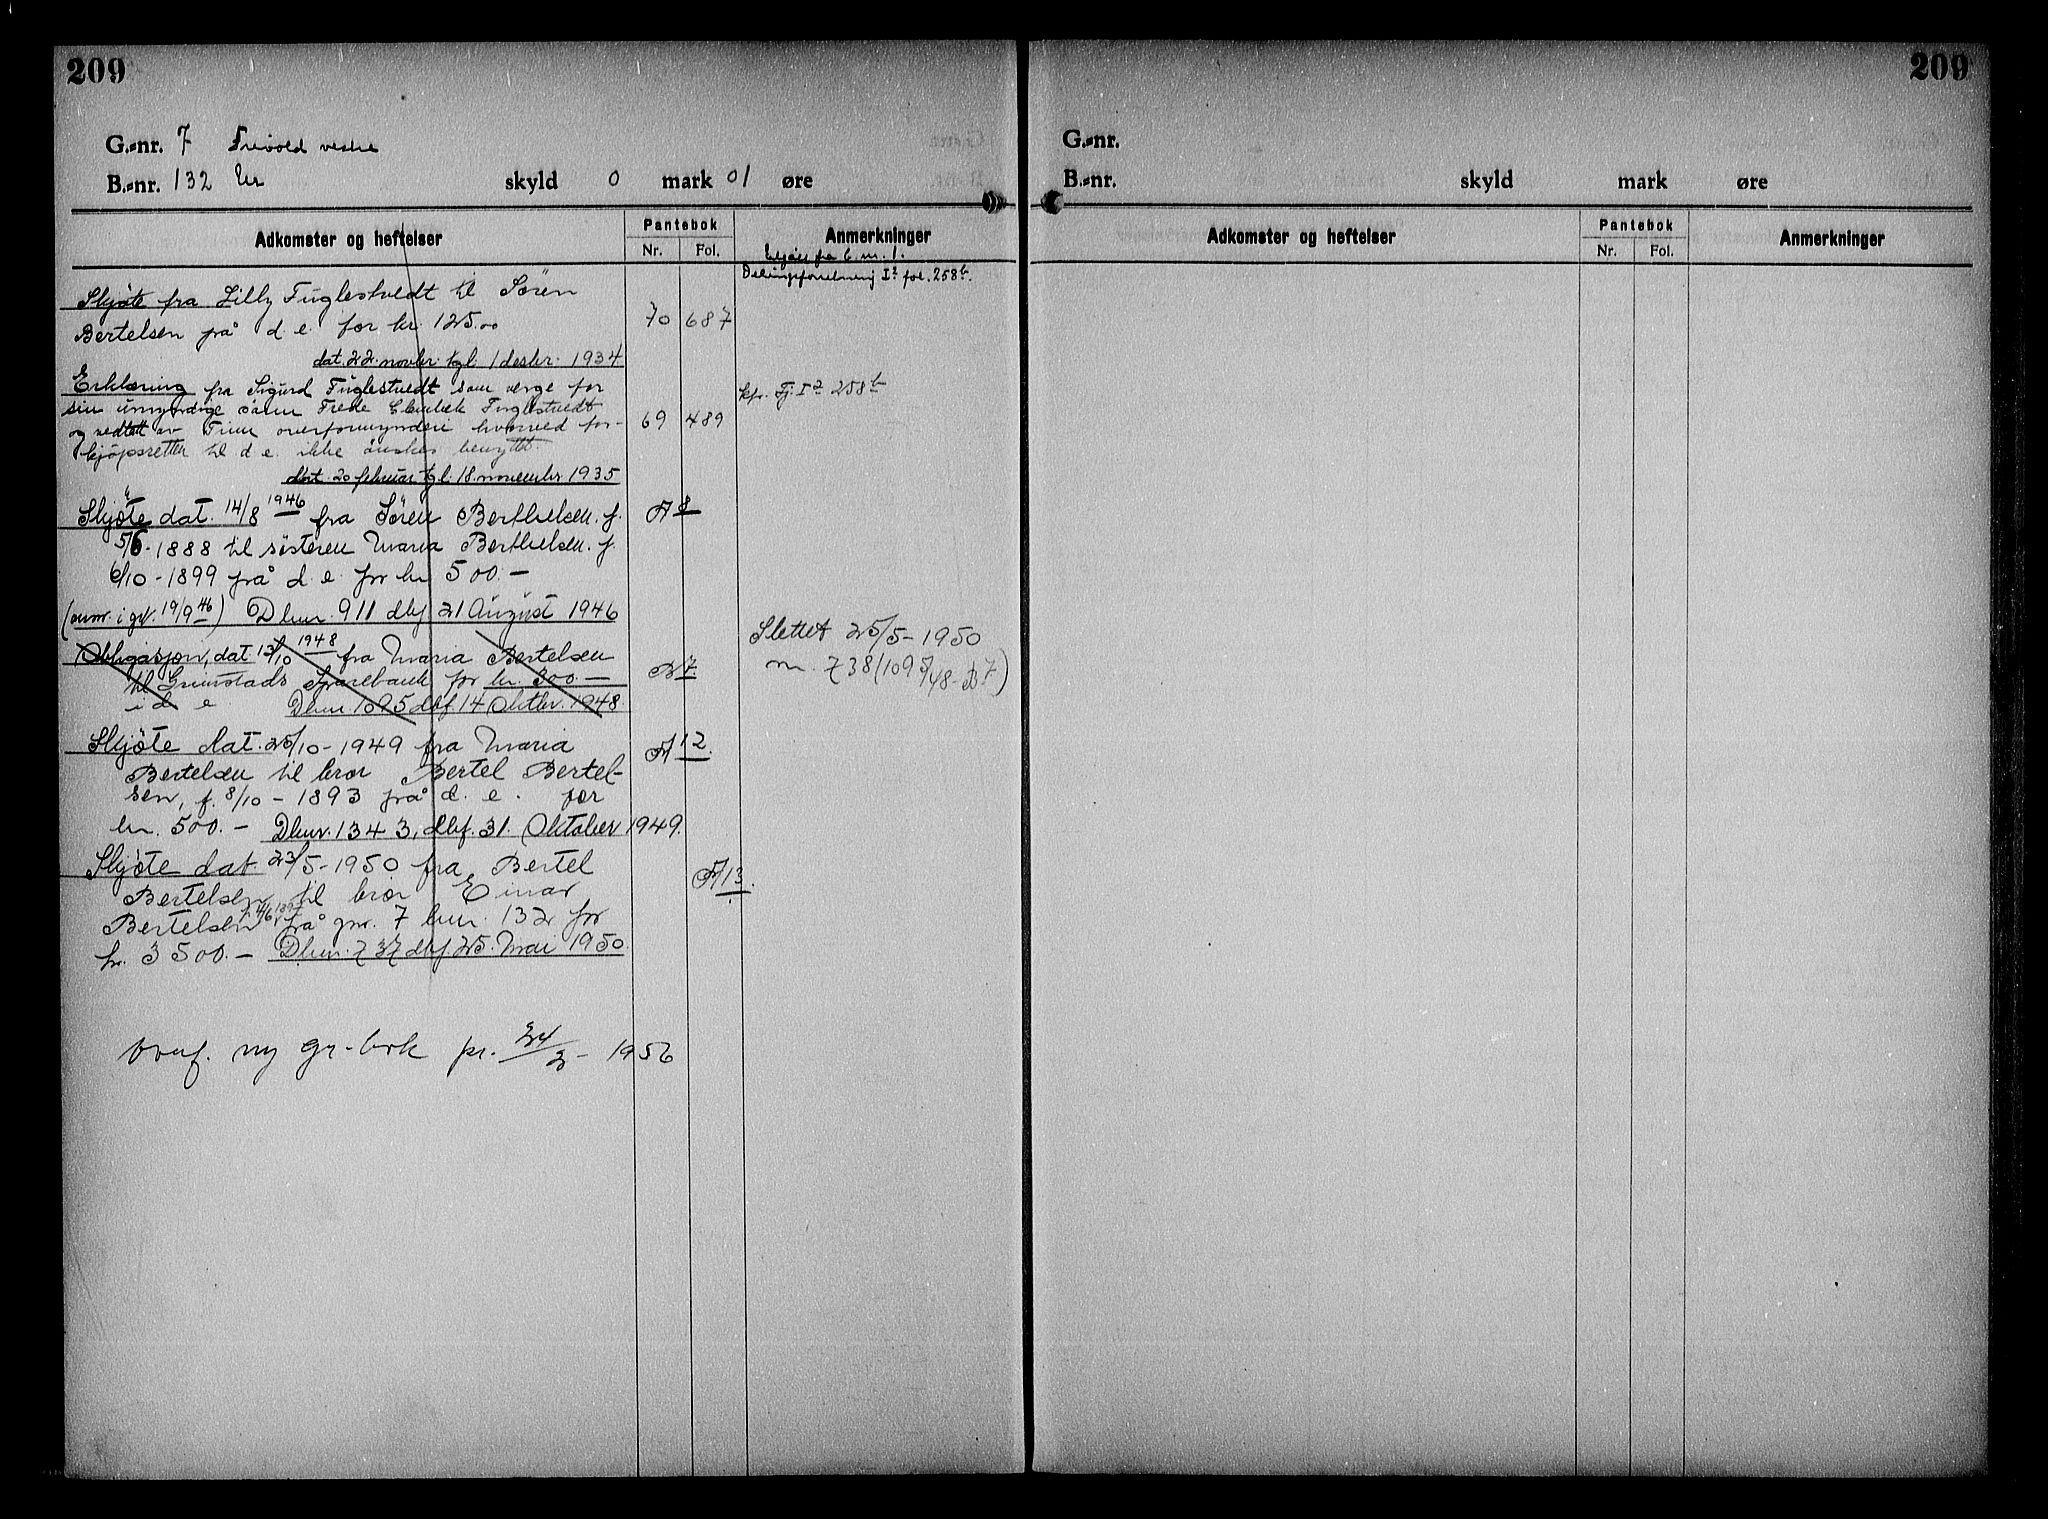 209
G.-nr. 7 Frivold vestre
B.-nr. 132 Ur skyld 0 mark 01 øre
Adkomster og heftelser
Pantebok
Nr. Fol.
Anmerkninger
fra b. nr. 1.
Delingsforretning I² fol. 258b.
Skjøte fra Lilly Fuglestvedt til Søren
Bertelsen på d. e. for kr. 125.00 70 687
dat. 22. novbr. tgl. 1 desbr. 1934
Erklæring fra Sigurd Fuglestvedt som verge for
sin umyndige sønn Frede Fuglestvedt
og vedtatt av overformynderi hvorved for-
kjøpsretten til d. e. ikke ønskes benyttet.
69 489
kfr. Fj. I² 258b
dat. 20 februar tgl. 18. november 1935
Skjøte dat. 14/8 1946 fra Søren Berthelsen. f. A 8
5/6-1888 til søsteren Maria Berthelsen. f.
6/10-1899 på d. e. for kr 500.-
(anm. i gr. 19/9 46) Dbnr. 911 dbf 21 August 1946
Obligasjon, dat 13/10 1948 fra Maria Bertelsen
til Grimstads Sparebank for kr. 300.- B 7.
i d. e. Dbnr. 1095 dbf. 14 Oktbr. 1948.
Slettet 25/5-1950
nr. 738 (1095/48-B7)
Skjöte dat. 25/10-1949 fra Maria A 12.
Bertelsen til bror Bertel Bertel-
sen, f. 8/10-1893 på d. e. for
kr. 500.- Dbnr. 1343, dbf. 31. Oktober 1949.
Skjöte dat 23/5-1950 fra Bertel A 13.
Bertelsen til bror Einar
Bertelsen på gnr. 7 bnr. 132 for
kr. 3500.- Dbnr. 737 dbf. 25. Mai 1950.
ovf. ny gr-bok pr. 24/2-1956
209
G.-nr.
B.-nr. skyld mark øre
Adkomster og heftelser
Pantebok
Nr. Fol.
Anmerkninger